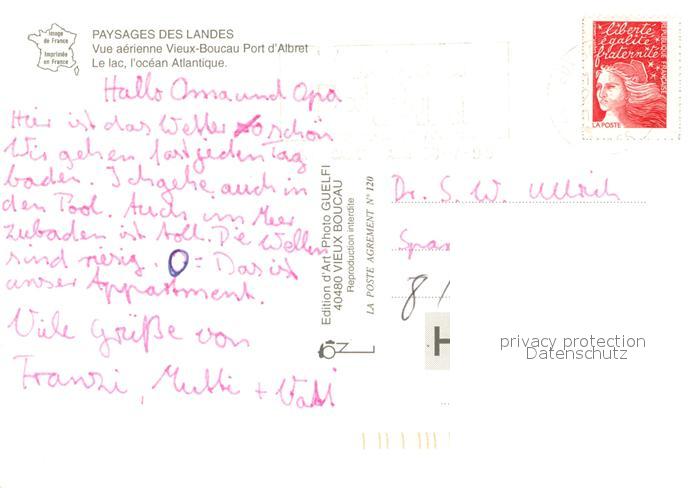 Image
de France
Imprimée
en France
PAYSAGES DES LANDES
Vue aérienne Vieux-Boucau Port d'Albret
Le lac, l'océan Atlantique.
Hallo Oma und Opa
Hier ist das Wetter so schön
Wir gehen fast jeden Tag
baden. Ich gehe auch in
den Pool. Auch im Meer
zubaden ist toll. Die Wellen
sind riesig. O = Das ist
unser Appartment.
Viele Grüße von
Franzi, Mutti + Vati
Edition d'Art - Photo GUELFI
40480 VIEUX BOUCAU
Reproduction interdite
LA POSTE AGREMENT N° 120
liberté
égalité
fraternité
REPUBLIQUE FRANÇAISE
LA POSTE
Dr. S. W. Ullrich
8
H
privacy protection
Datenschutz